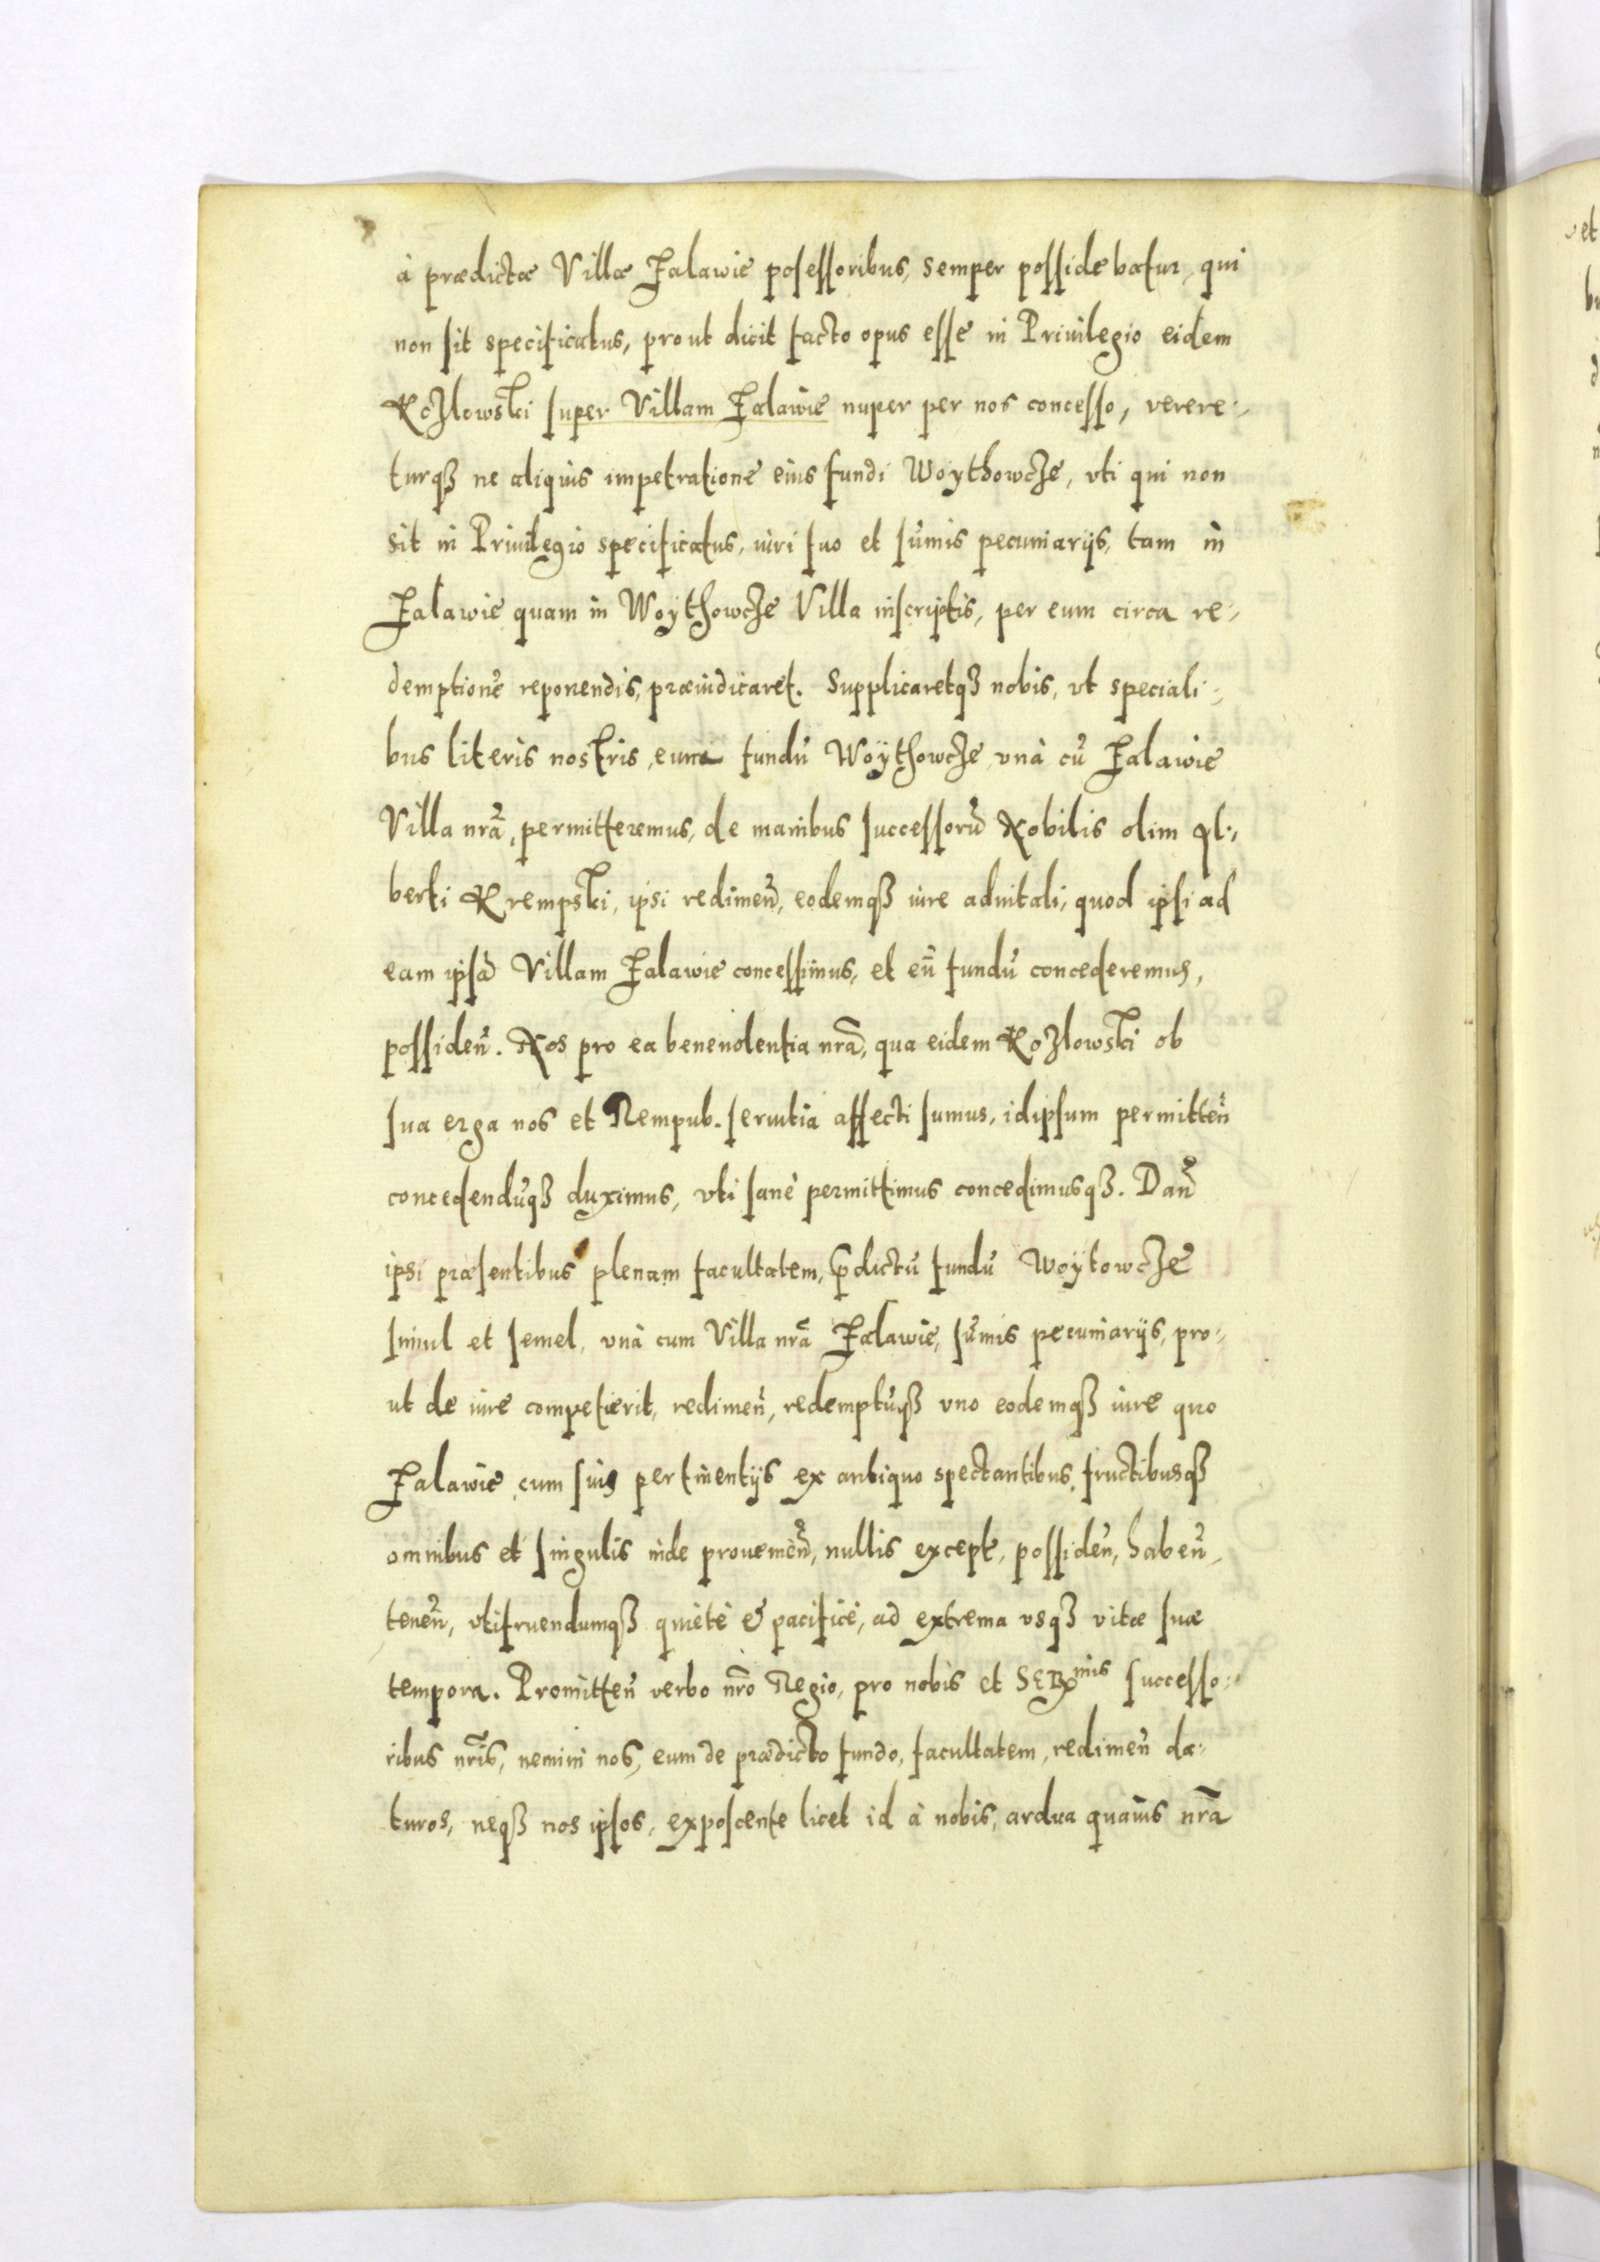 à prædictæ Villæ Halawie posessoribus, semper possidebatur, qui
non sit specificatus, prout dicit facto opus esse in Priuilegio eidem
Kozlowski super Villam Halawie nuper per nos concesso, verere-,
turqȝ ne aliquis impetratione eius fundi Woythowcze, vti qui non
sit in Priuilegio specificatus, iuri suo et sūmis pecuniarijs, tam in
Halawie quam in Woÿthowcze Villa inscriptis, per eum circa re-,
demptionē reponendis, præiudicaret. Supplicaretqȝ nobis, vt speciali-,
bus literis nostris, eum fundū Woÿthowcze, vnà cū Halawie
Villa nrā, permitteremus, de manibus successorū Nobilis olim Al-,
berti Krempski, ipsi redimen̄, eodemqȝ iure aduitali, quod ipsi ad
eam ipsā Villam Halawie concessimus, et eū fundū concederemus,
possiden̄. Nos pro ea beneuolentia nrā, qua eidem Kozlowski ob
sua erga nos et Rempub. seruitia affecti sumus, idipsum permitten̄
concedendūqȝ duximus, vti sanè permittimus concedimusqȝ. Dan̄
ipsi præsentibus plenam facultatem, p̄dictū fundū Woÿtowcze
simul et semel, vnà cum Villa nrā Halawie, sūmis pecuniarijs, pro-,
ut de iure competierit, redimen̄, redemptūqȝ vno eodemqȝ iure quo
Halawie, cum suis pertinentijs ex antiquo spectantibus, fructibusqȝ
omnibus et singulis inde prouenien̄, nullis except, possiden̄, haben̄,
tenen̄, vtifruendumqȝ quietè & pacificè, ad extrema vsqȝ vitæ suæ
tempora. Promitten̄ verbo nr̄o Regio, pro nobis et SERmis successo-,
ribus nrīs, nemini nos, eum de prædicto fundo, facultatem, redimen̄ da-,
turos, neqȝ nos ipsos, exposcente licet id à nobis, ardua quauis nrā